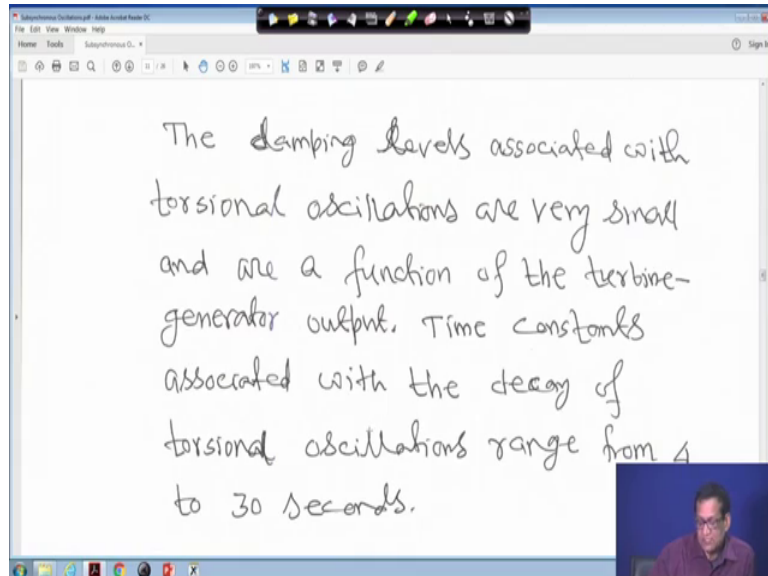 Subsynchronous Oscillations.pdf - Adobe Acrobat Reader DC
File Edit View Window Help
Home Tools Subsynchronous O... ×
Sign In
The damping levels associated with
torsional oscillations are very small
and are a function of the turbine-
generator output. Time constants
associated with the decay of
torsional oscillations range from 4
to 30 seconds.